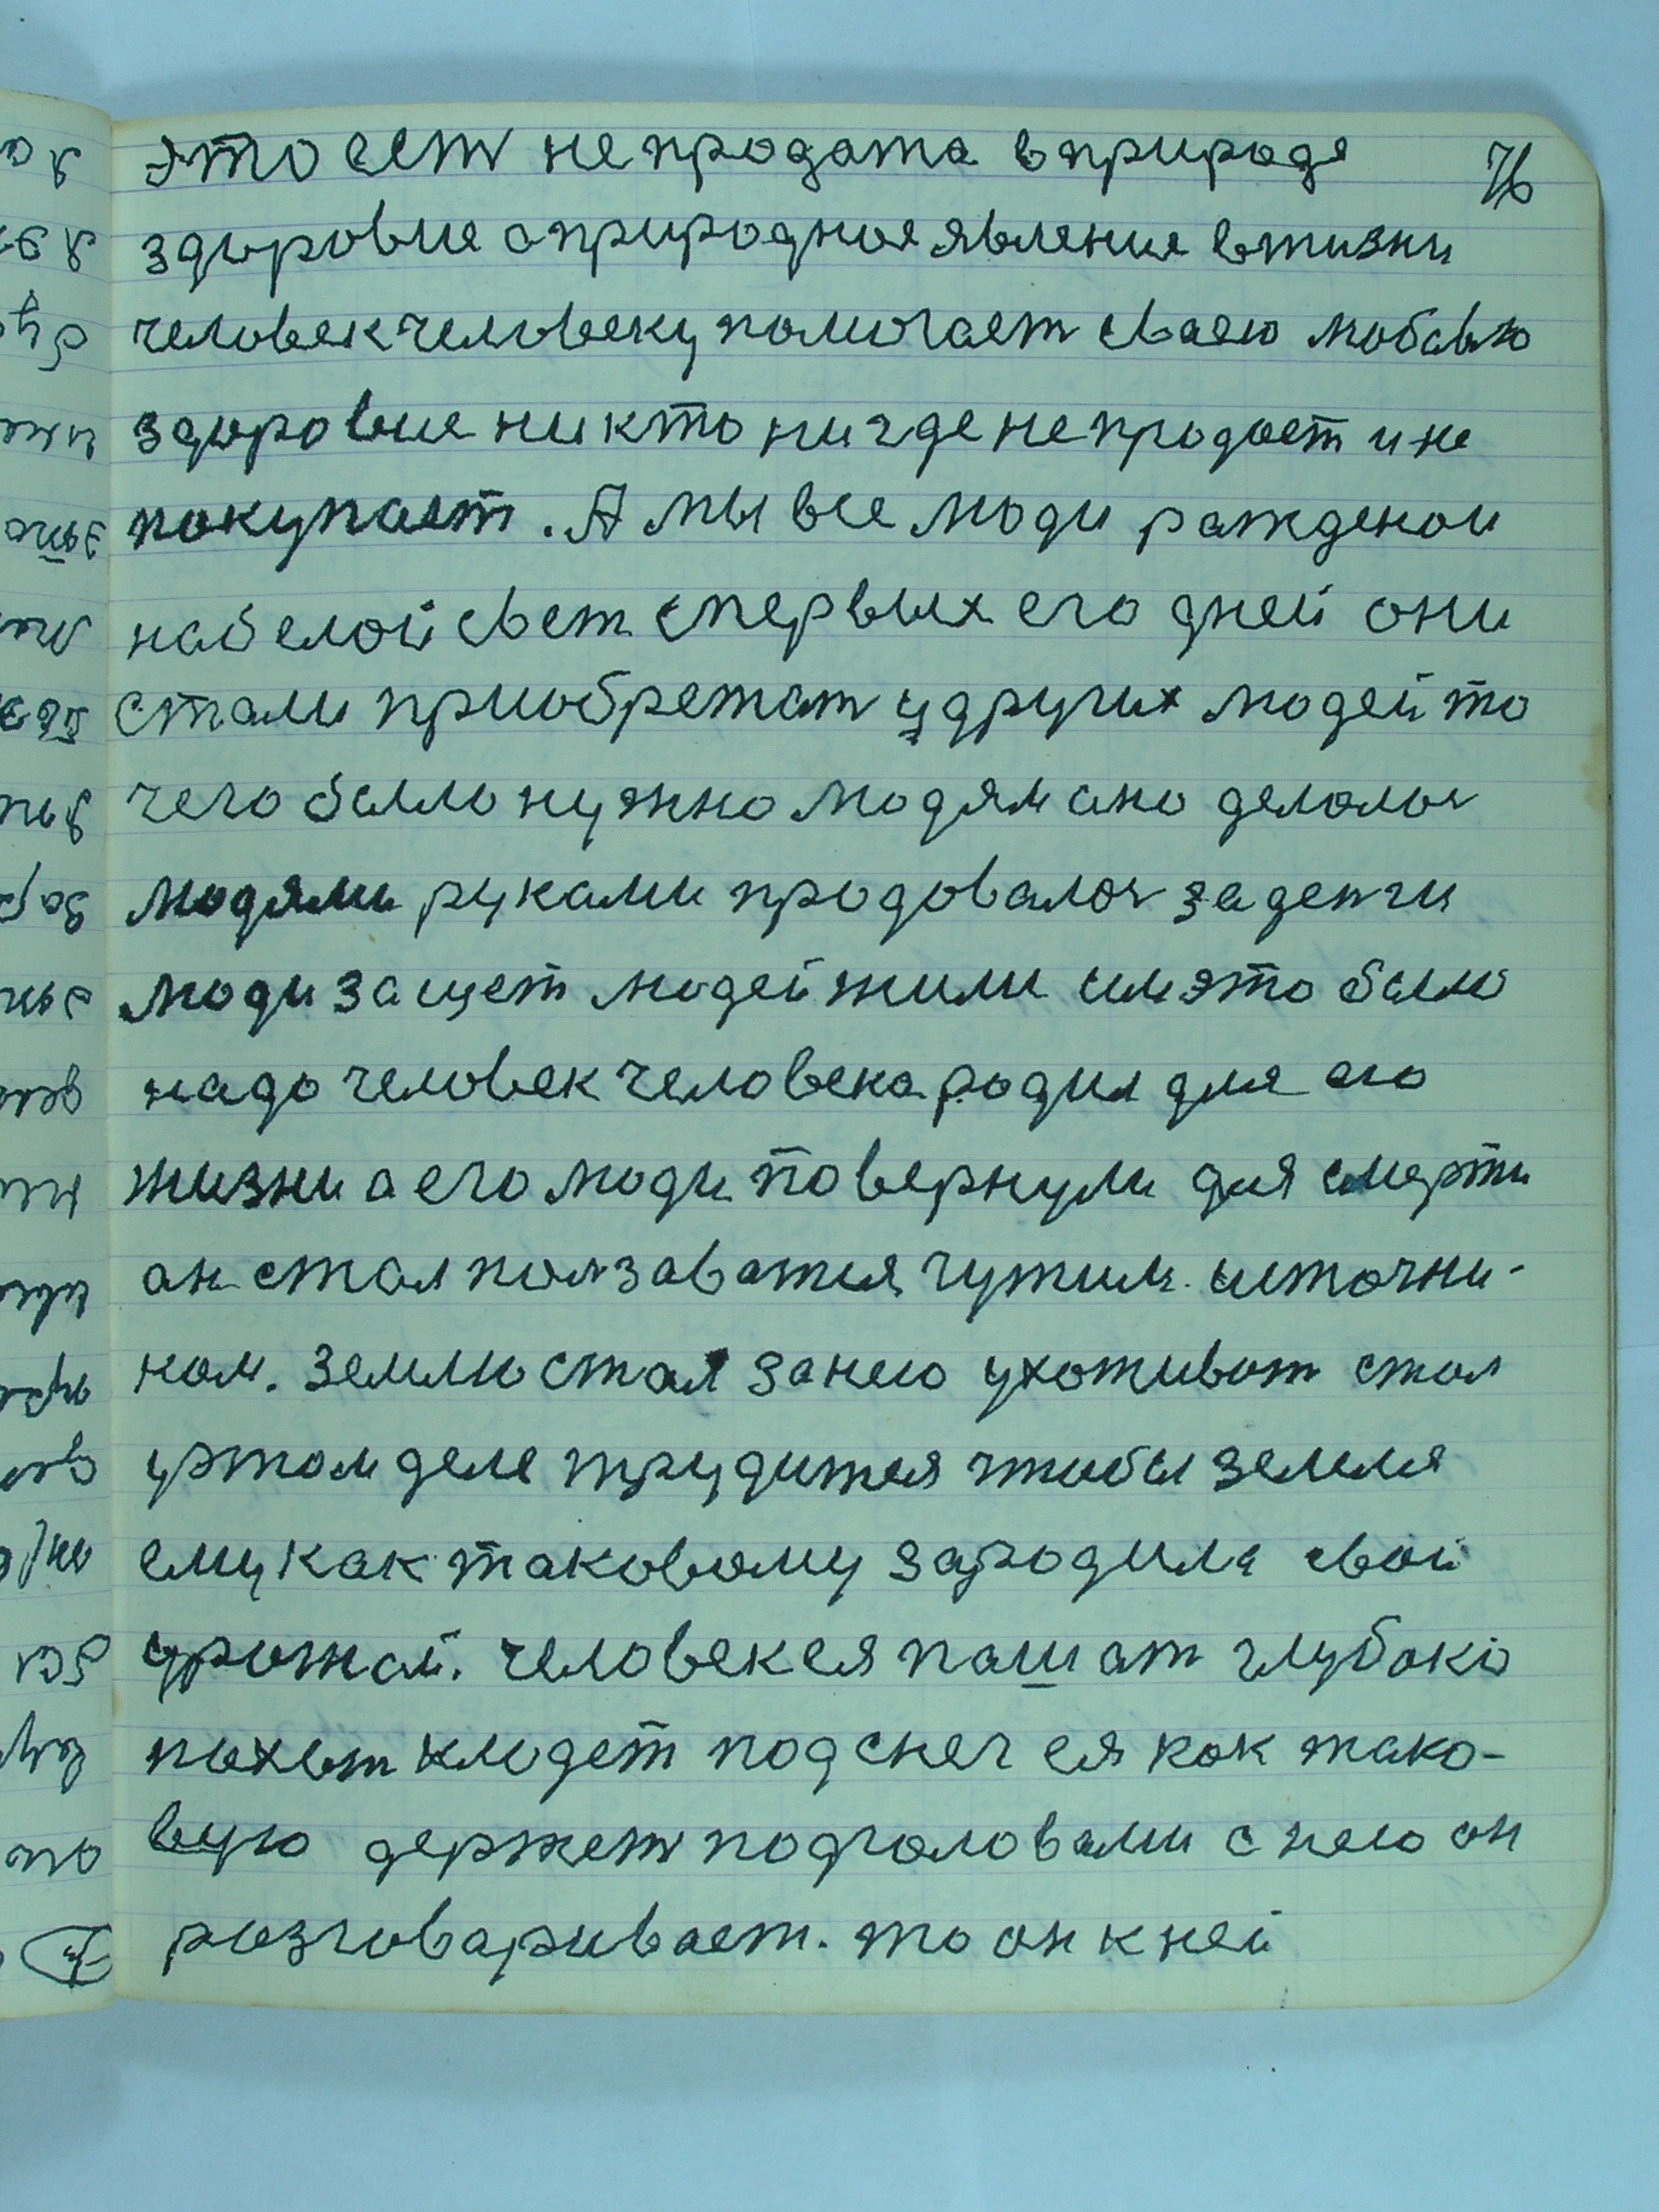 это сеть не продажа в природе 76
здоровие а природная явления в жизни
человек человеку помогает сваею любовью
здоровие ни кто ни где не продает и не
покупает. А мы все люди рожденои
на белой свет с первых его дней они
стали приобретат у других людей то
чего было нужно людям ано делолос
людями руками продовалос за денги
люди за щет людей жили им это было
надо человек человека родил для его
жизни а его люди повернули для смерти
ан стал ползаватся чужим источни-
ком. Землю стал за нею ухоживат стал
у этом деле трудится чтобы земля
ему как таковому зародила свой
урожай. Человек ея пашат глубоко
пахот клюдет под снег ея как тако-
вую держет под головами с нею он
розговаривает. то он к ней